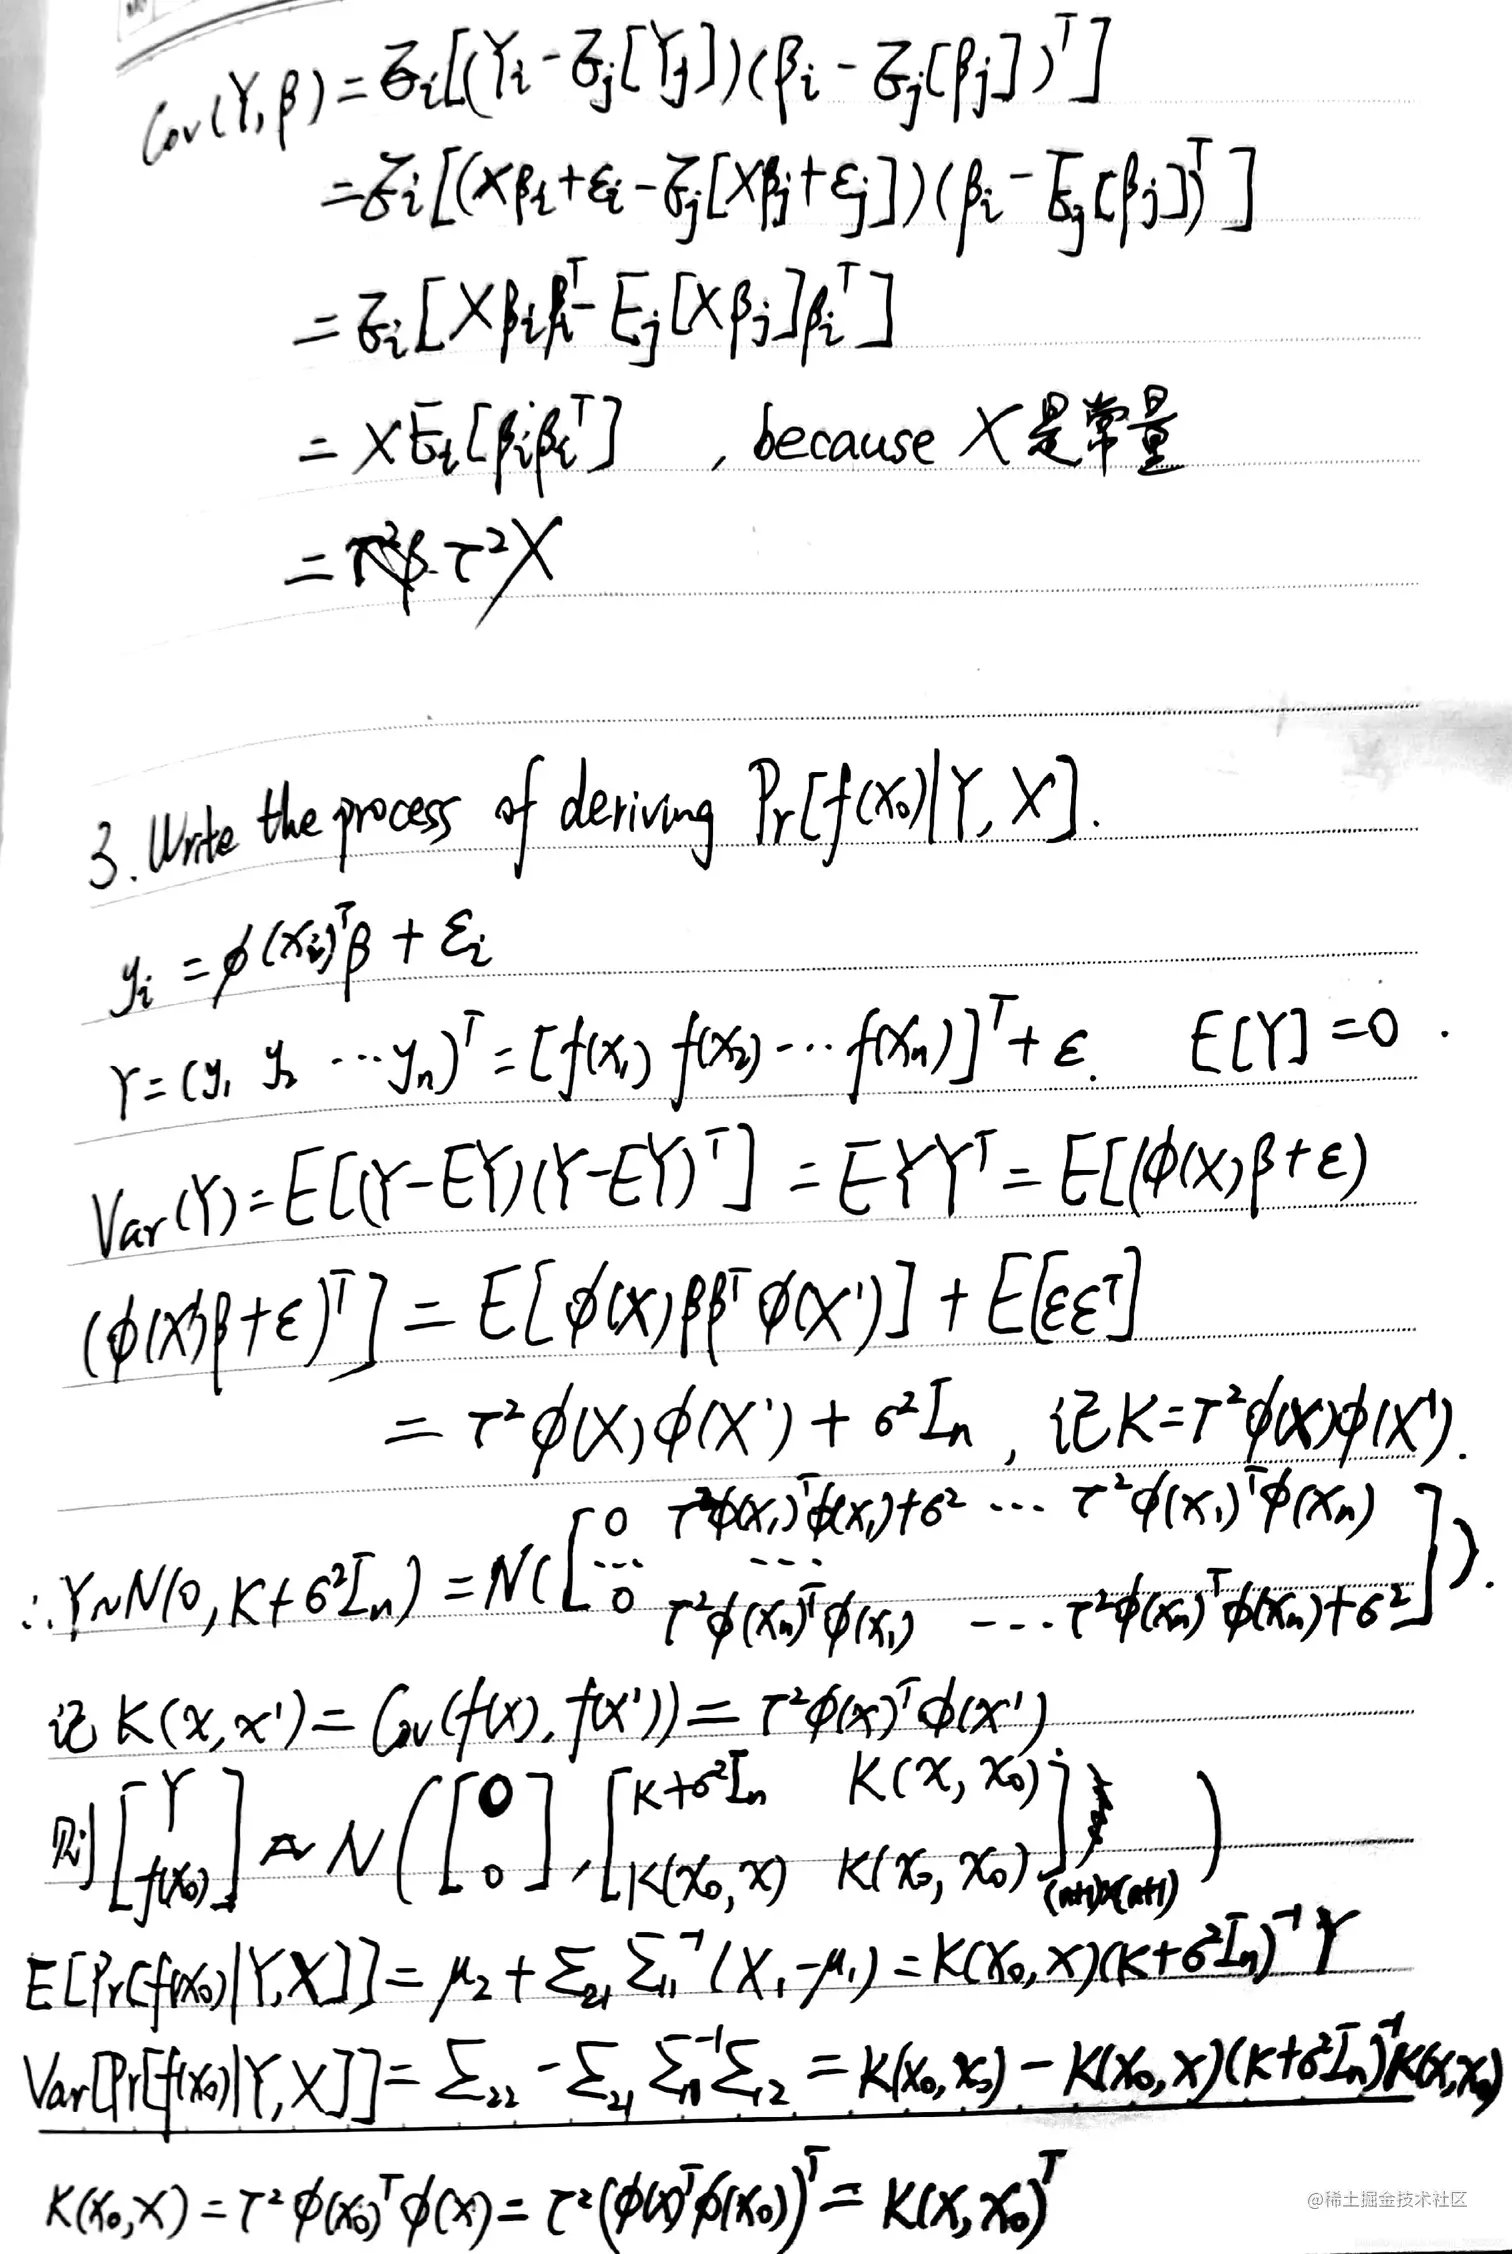 Cov(Y,β)=Ei[(Yi-Ej[Yj])(βi-Ej[βj])^T]
=Ei[(Xβi+εi-Ej[Xβj+εj])(βi-Ej[βj])^T]
=Ei[Xβiβi^T-Ej[Xβj]βi^T]
=XEi[βiβi^T] , because X是常量
= τ²X
3. Write the process of deriving Pr[f(x₀)|Y, X].
yi=ϕ(xi)^Tβ+εi
Y=(y₁ y₂ ⋯yn)^T=[f(x₁) f(x₂)⋯f(xn)]^T+ε. E[Y]=0.
Var(Y)=E[(Y-EY)(Y-EY)^T]=EYY^T=E[(ϕ(X)β+ε)
(ϕ(X)β+ε)^T]=E[ϕ(X)ββ^Tϕ(X')]+E[εε^T]
=τ²ϕ(X)ϕ(X')+σ²In, 记K=τ²ϕ(X)ϕ(X').
∴Y~N(0,K+σ²In)=N([0 τ²ϕ(x₁)^Tϕ(x₁)+σ² ⋯ τ²ϕ(x₁)^Tϕ(xn)
⋯ ⋯
0 τ²ϕ(xn)^Tϕ(x₁) ⋯ τ²ϕ(xn)^Tϕ(xn)+σ²]).
记K(x,x')=Cov(f(x),f(x'))=τ²ϕ(x)^Tϕ(x')
则[Y f(x₀)]~N([0 0],[K+σ²In K(x,x₀) K(x₀,x) K(x₀,x₀)](n+1)×(n+1))
E[Pr[f(x₀)|Y,X]]=μ₂+Σ₂₁Σ₁₁⁻¹(X₁-μ₁)=K(x₀,x)(K+σ²In)⁻¹Y
Var[Pr[f(x₀)|Y,X]]=Σ₂₂-Σ₂₁Σ₁₁⁻¹Σ₁₂=K(x₀,x₀)-K(x₀,x)(K+σ²In)⁻¹K(x,x₀)
K(x₀,x)=τ²ϕ(x₀)^Tϕ(x)=τ²(ϕ(x)^Tϕ(x₀))^T=K(x,x₀)^T
@稀土掘金技术社区